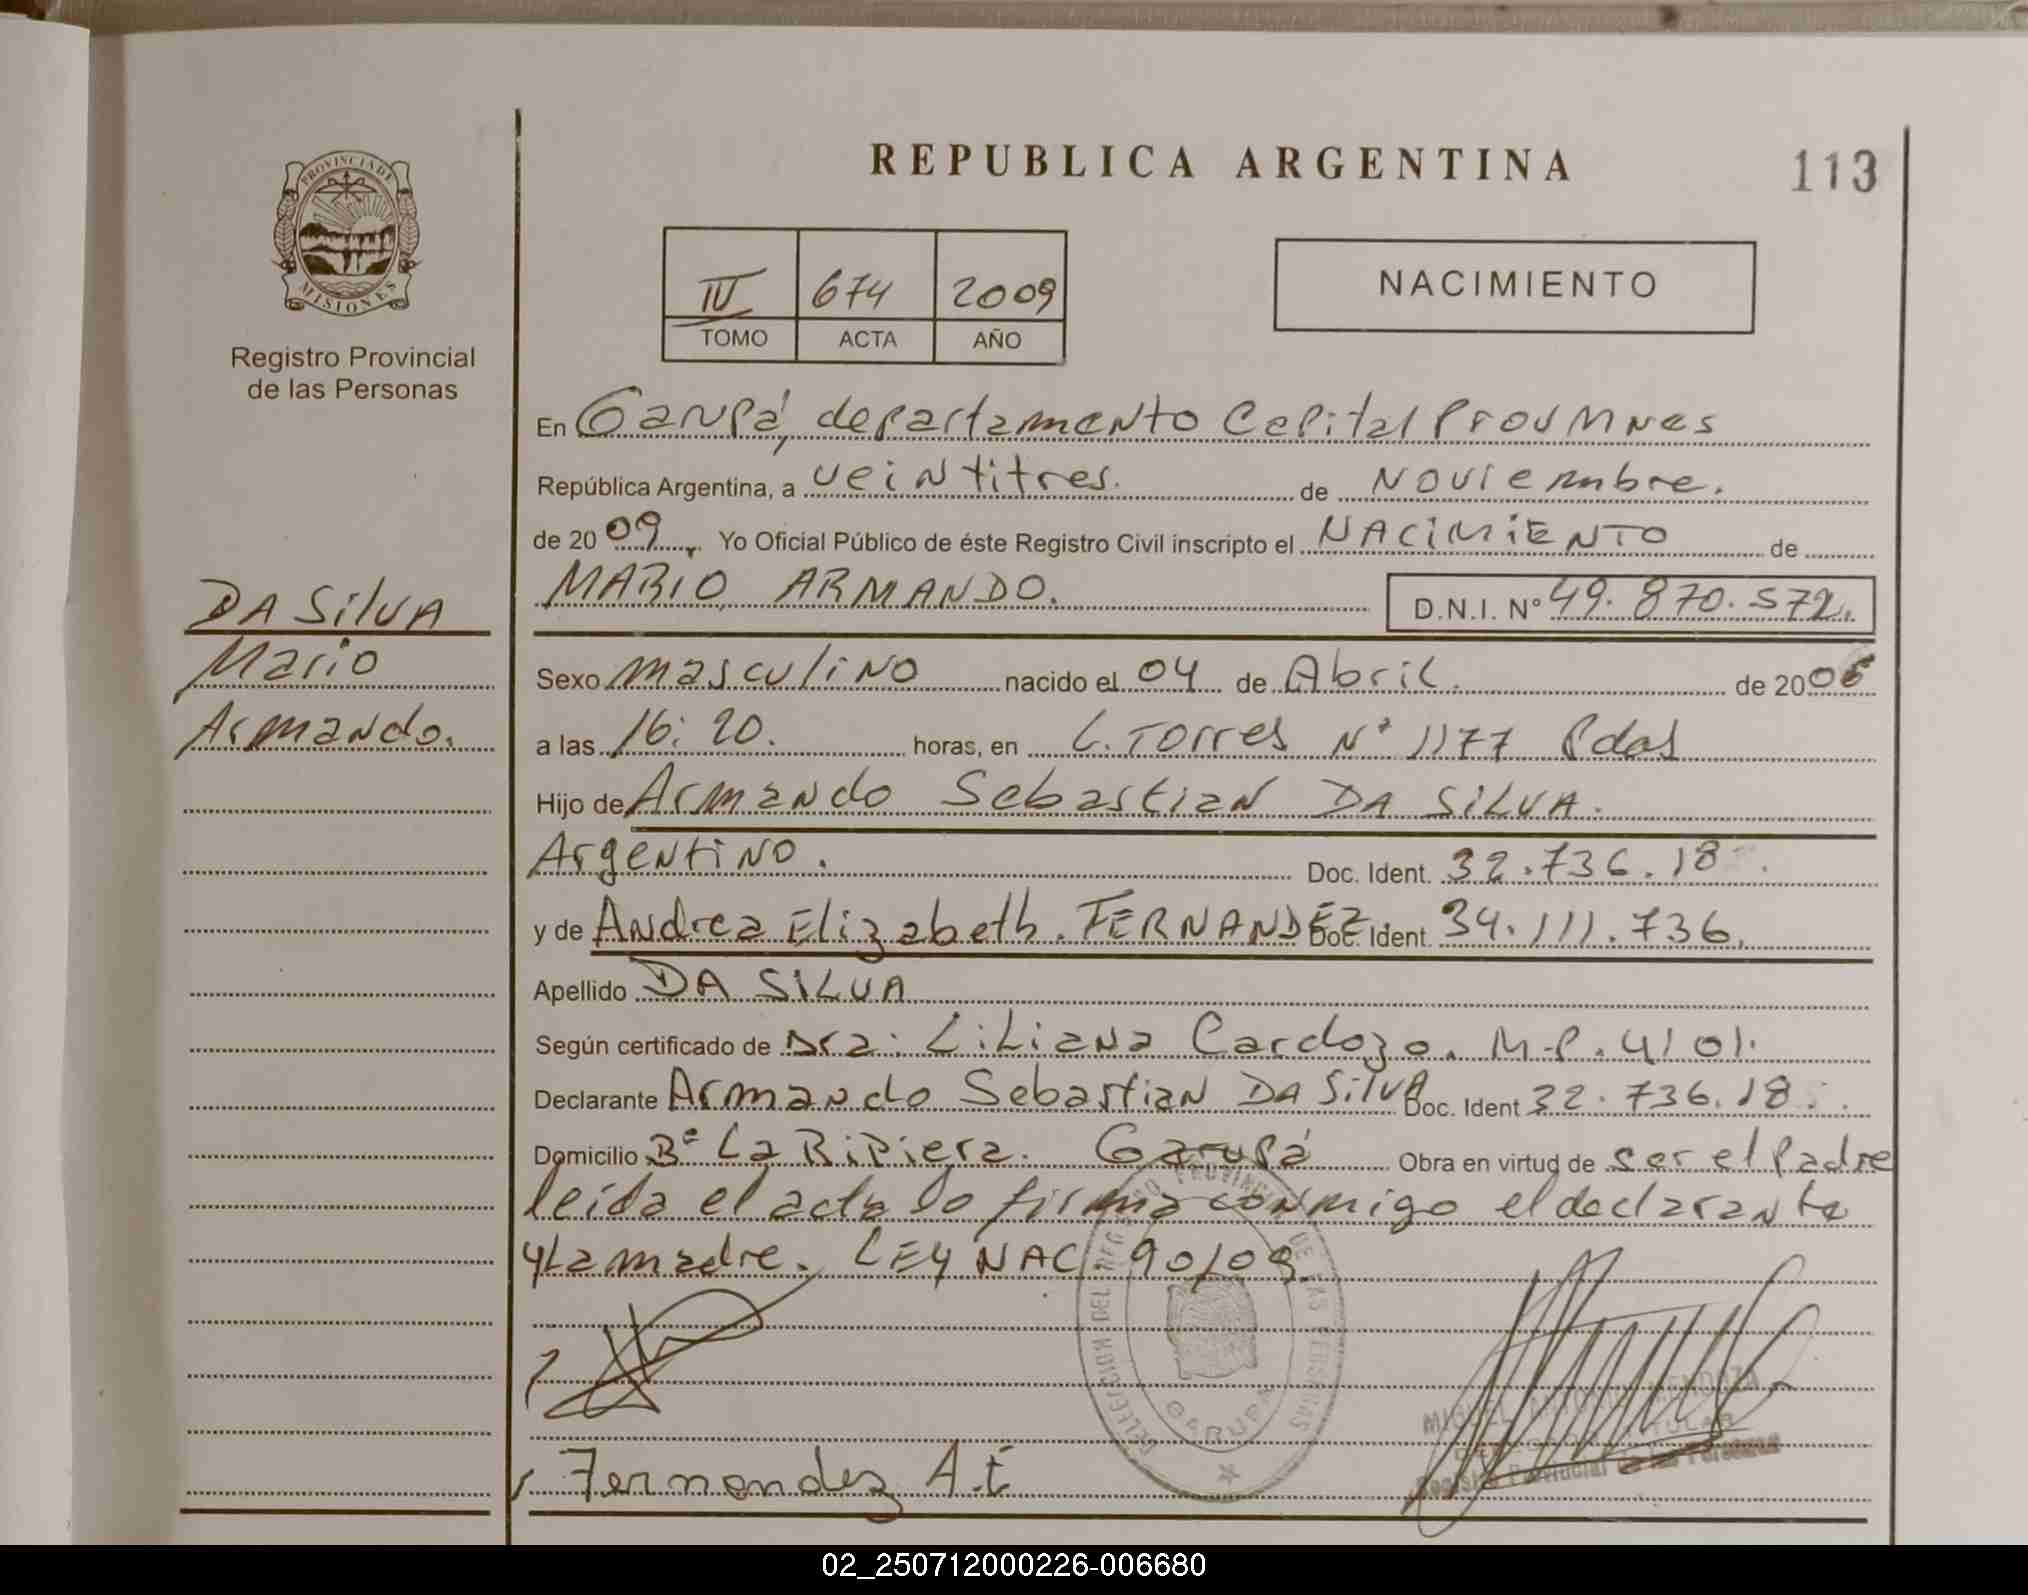 REPUBLICA ARGENTINA
113
PROVINCIA DE
MISIONES
Registro Provincial
de las Personas
IV 674 2009
TOMO ACTA AÑO
NACIMIENTO
En Garupá, departamento Capital Prov Mnes
República Argentina, a veintitres. de Noviembre.
de 2009. Yo Oficial Público de éste Registro Civil inscripto el NACIMIENTO de
MARIO ARMANDO. D.N.I. Nº 49.870.572.
DA SilVA
Mario
Armando.
Sexo masculino nacido el 04 de Abril. de 2006
a las 16:20. horas, en C. Torres Nº 1177 Pdas
Hijo de Armando Sebastian DA SILVA.
Argentino. Doc. Ident. 32.736.18
y de Andrea Elizabeth. FERNANDEZ. Doc. Ident. 34.111.736.
Apellido DA SILVA
Según certificado de Dra. Liliana Cardozo. M.P. 4101.
Declarante Armando Sebastian DA SilVA Doc. Ident 32.736.18
Domicilio Bº La Ribiera. Garupá Obra en virtud de ser el Padre
leída el acta lo firma conmigo el declarante
y La madre. LEY NAC. 90/09.
DELEGACION DEL REGISTRO PROVINCIAL DE LAS PERSONAS
GARUPA
MIGUEL MENDOZA
TITULAR
Registro Provincial de las Personas
Fernandez A.E
02_250712000226-006680